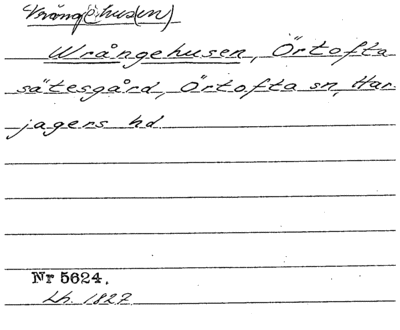 Vrång(e)husen)
Wrångehusen, Örtofta
sätesgård, Örtofta sn, Har-
jagers hd
Nr 5624.
Lh. 1827